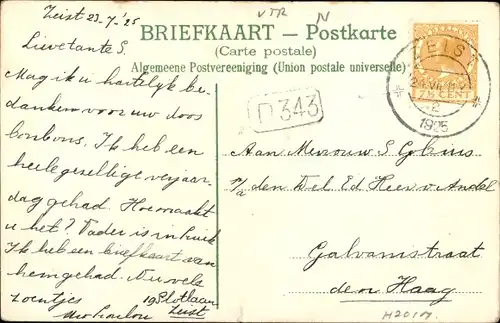 Zeist 23-7-'25
VTR N
BRIEFKAART — Postkarte
(Carte postale)
Algemeene Postvereeniging (Union postale universelle)
Lieve tante S.
Mag ik u hartelijk be-
danken voor uw doos
bonbons. Ik heb een
heele gezellige verjaar-
dag gehad. Hoe maakt
u het? Vader is in
Ik heb een briefkaart van
hem gehad. Nu vele
zoentjes
19 Slotlaan
Zeist
D 343
ZEIST
7½ CENT
2
1925
Aan Mevrouw S
p/a den Wel Ed Heer v. Andel
Galvanistraat
den Haag
H20101